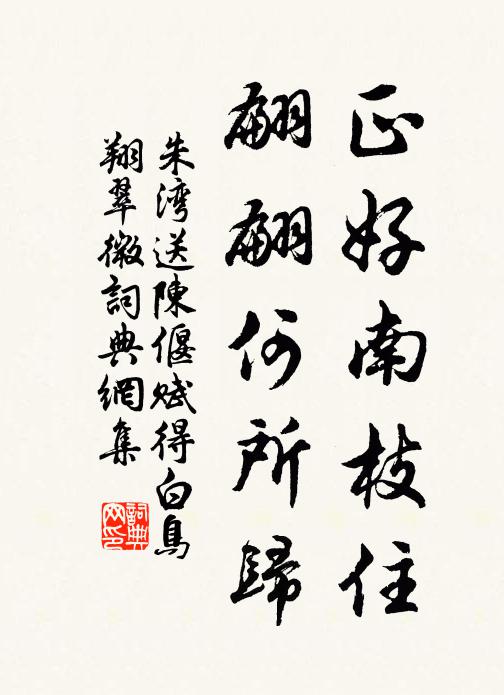 正好南枝住
翩翩何所歸
朱湾送陳偃赋得白鳥
翔翠微詞典網集
詞典
网印